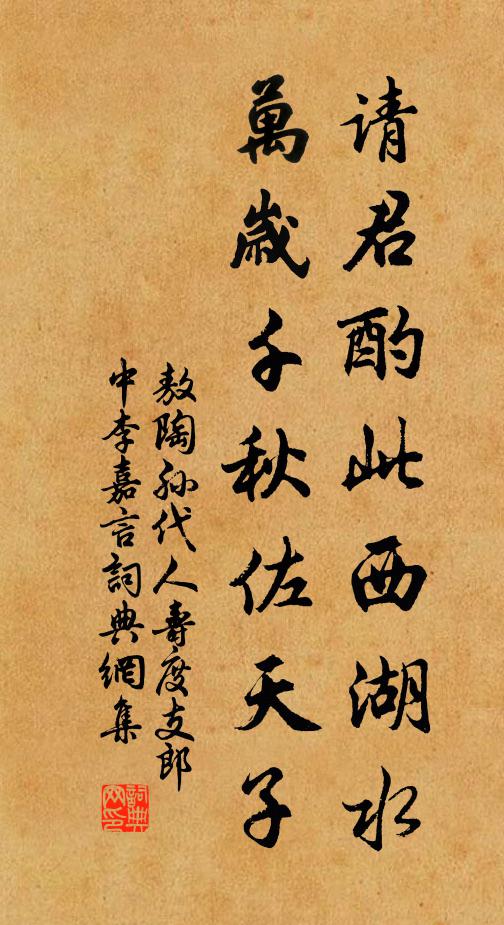 请君酌此西湖水
萬歲千秋佐天子
敖陶孙代人壽度支郎
中李嘉言詞典網集
詞典網印